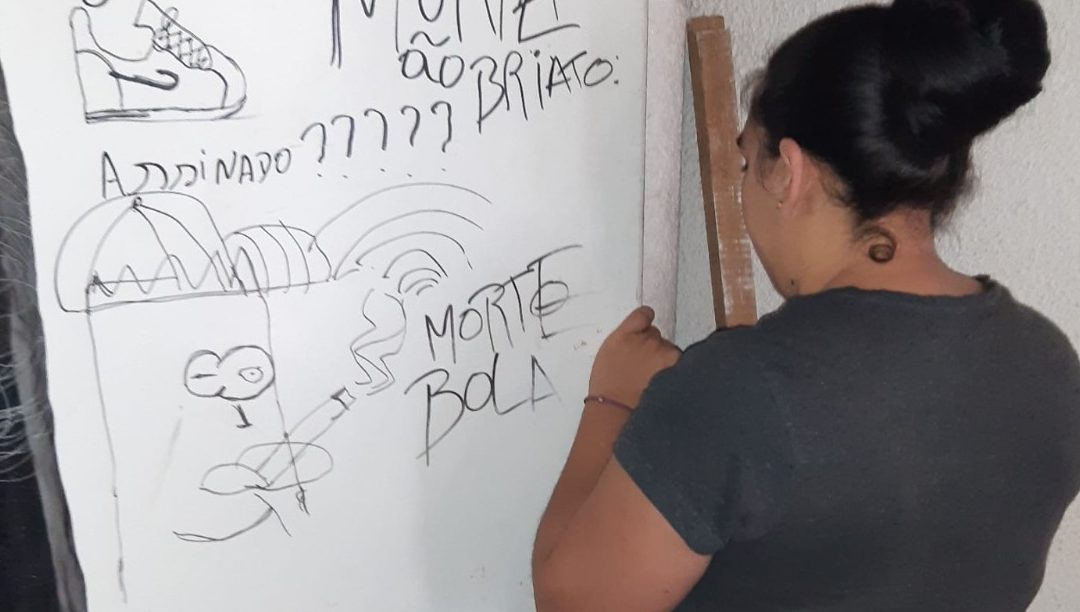 MORTE
ão BRiATO:
ASSiNADO ?????
MORTE
BOLA